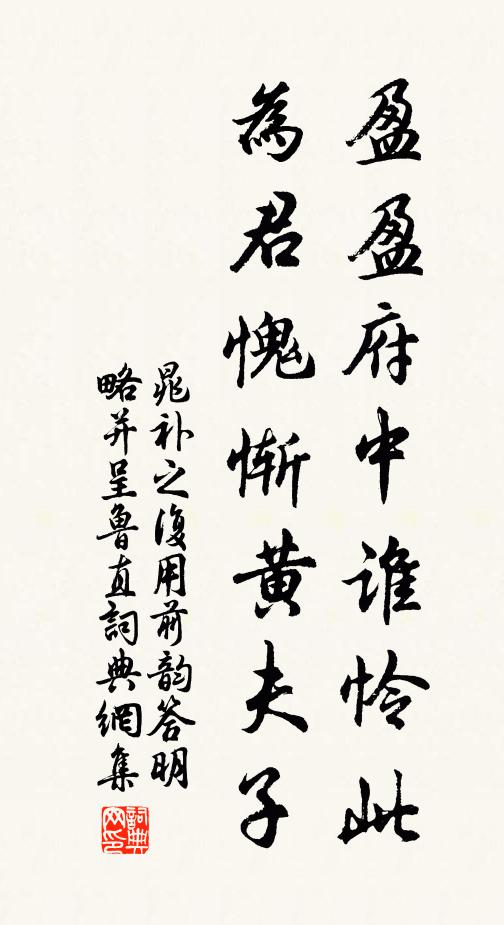 盈盈府中谁怜此
為君愧惭黄夫子
晁补之復用前韵答明
略并呈鲁直詞典網集
詞典网印